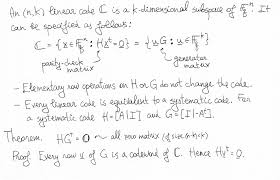 An (n,k) linear code ℂ is a k-dimensional subspace of 𝔽_q^n. It
can be specified as follows:
ℂ = {x ∈ 𝔽_q^n : Hx^T = 0} = {uG : u ∈ 𝔽_q^k}
parity-check matrix
generator matrix
- Elementary row operations on H or G do not change the code.
- Every linear code is equivalent to a systematic code. For
a systematic code H = [A|I] and G = [I|-A^T].
Theorem. HG^T = 0 ~ all zero matrix (of size (n-k)×k)
Proof. Every row x of G is a codeword of ℂ. Hence Hx^T = 0.